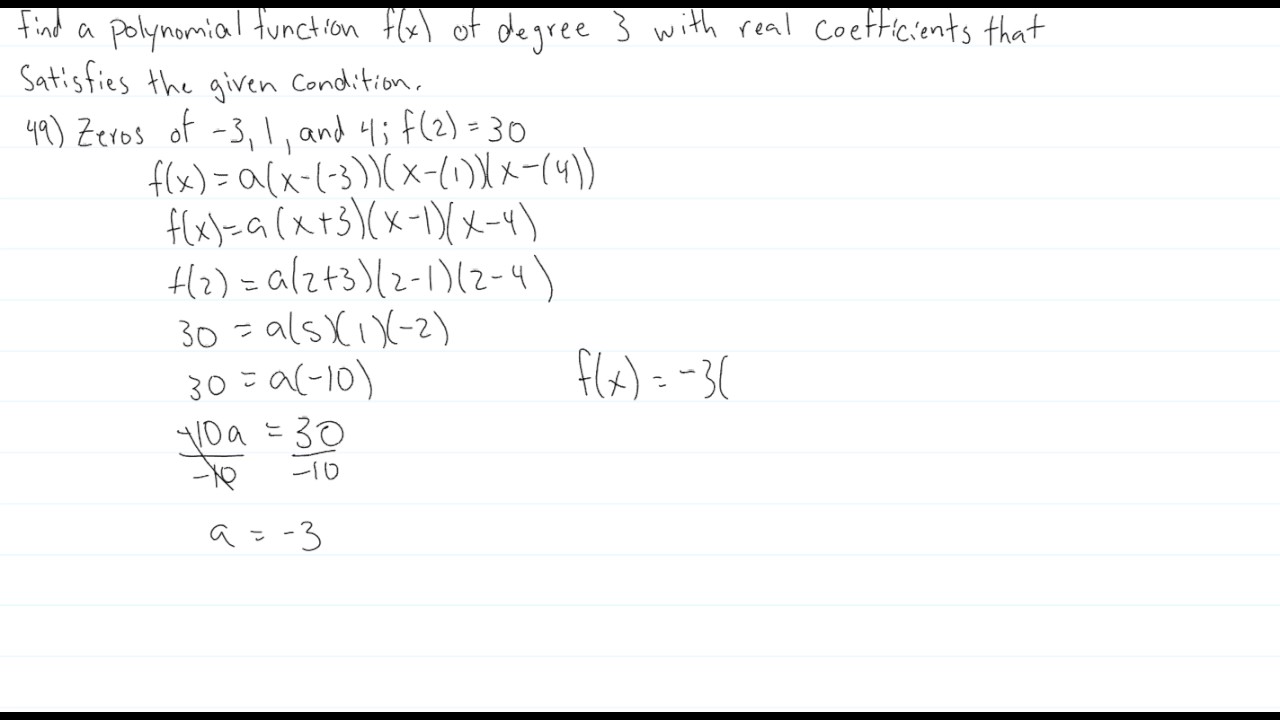 find a polynomial function f(x) of degree 3 with real coefficients that
Satisfies the given condition.
49) Zeros of -3, 1, and 4; f(2) = 30
f(x) = a(x-(-3))(x-(1))(x-(4))
f(x)=a(x+3)(x-1)(x-4)
f(2) = a(2+3)(2-1)(2-4)
30 = a(5)(1)(-2)
30 = a(-10)
f(x) = -3(
-10a = 30
-10 -10
a = -3